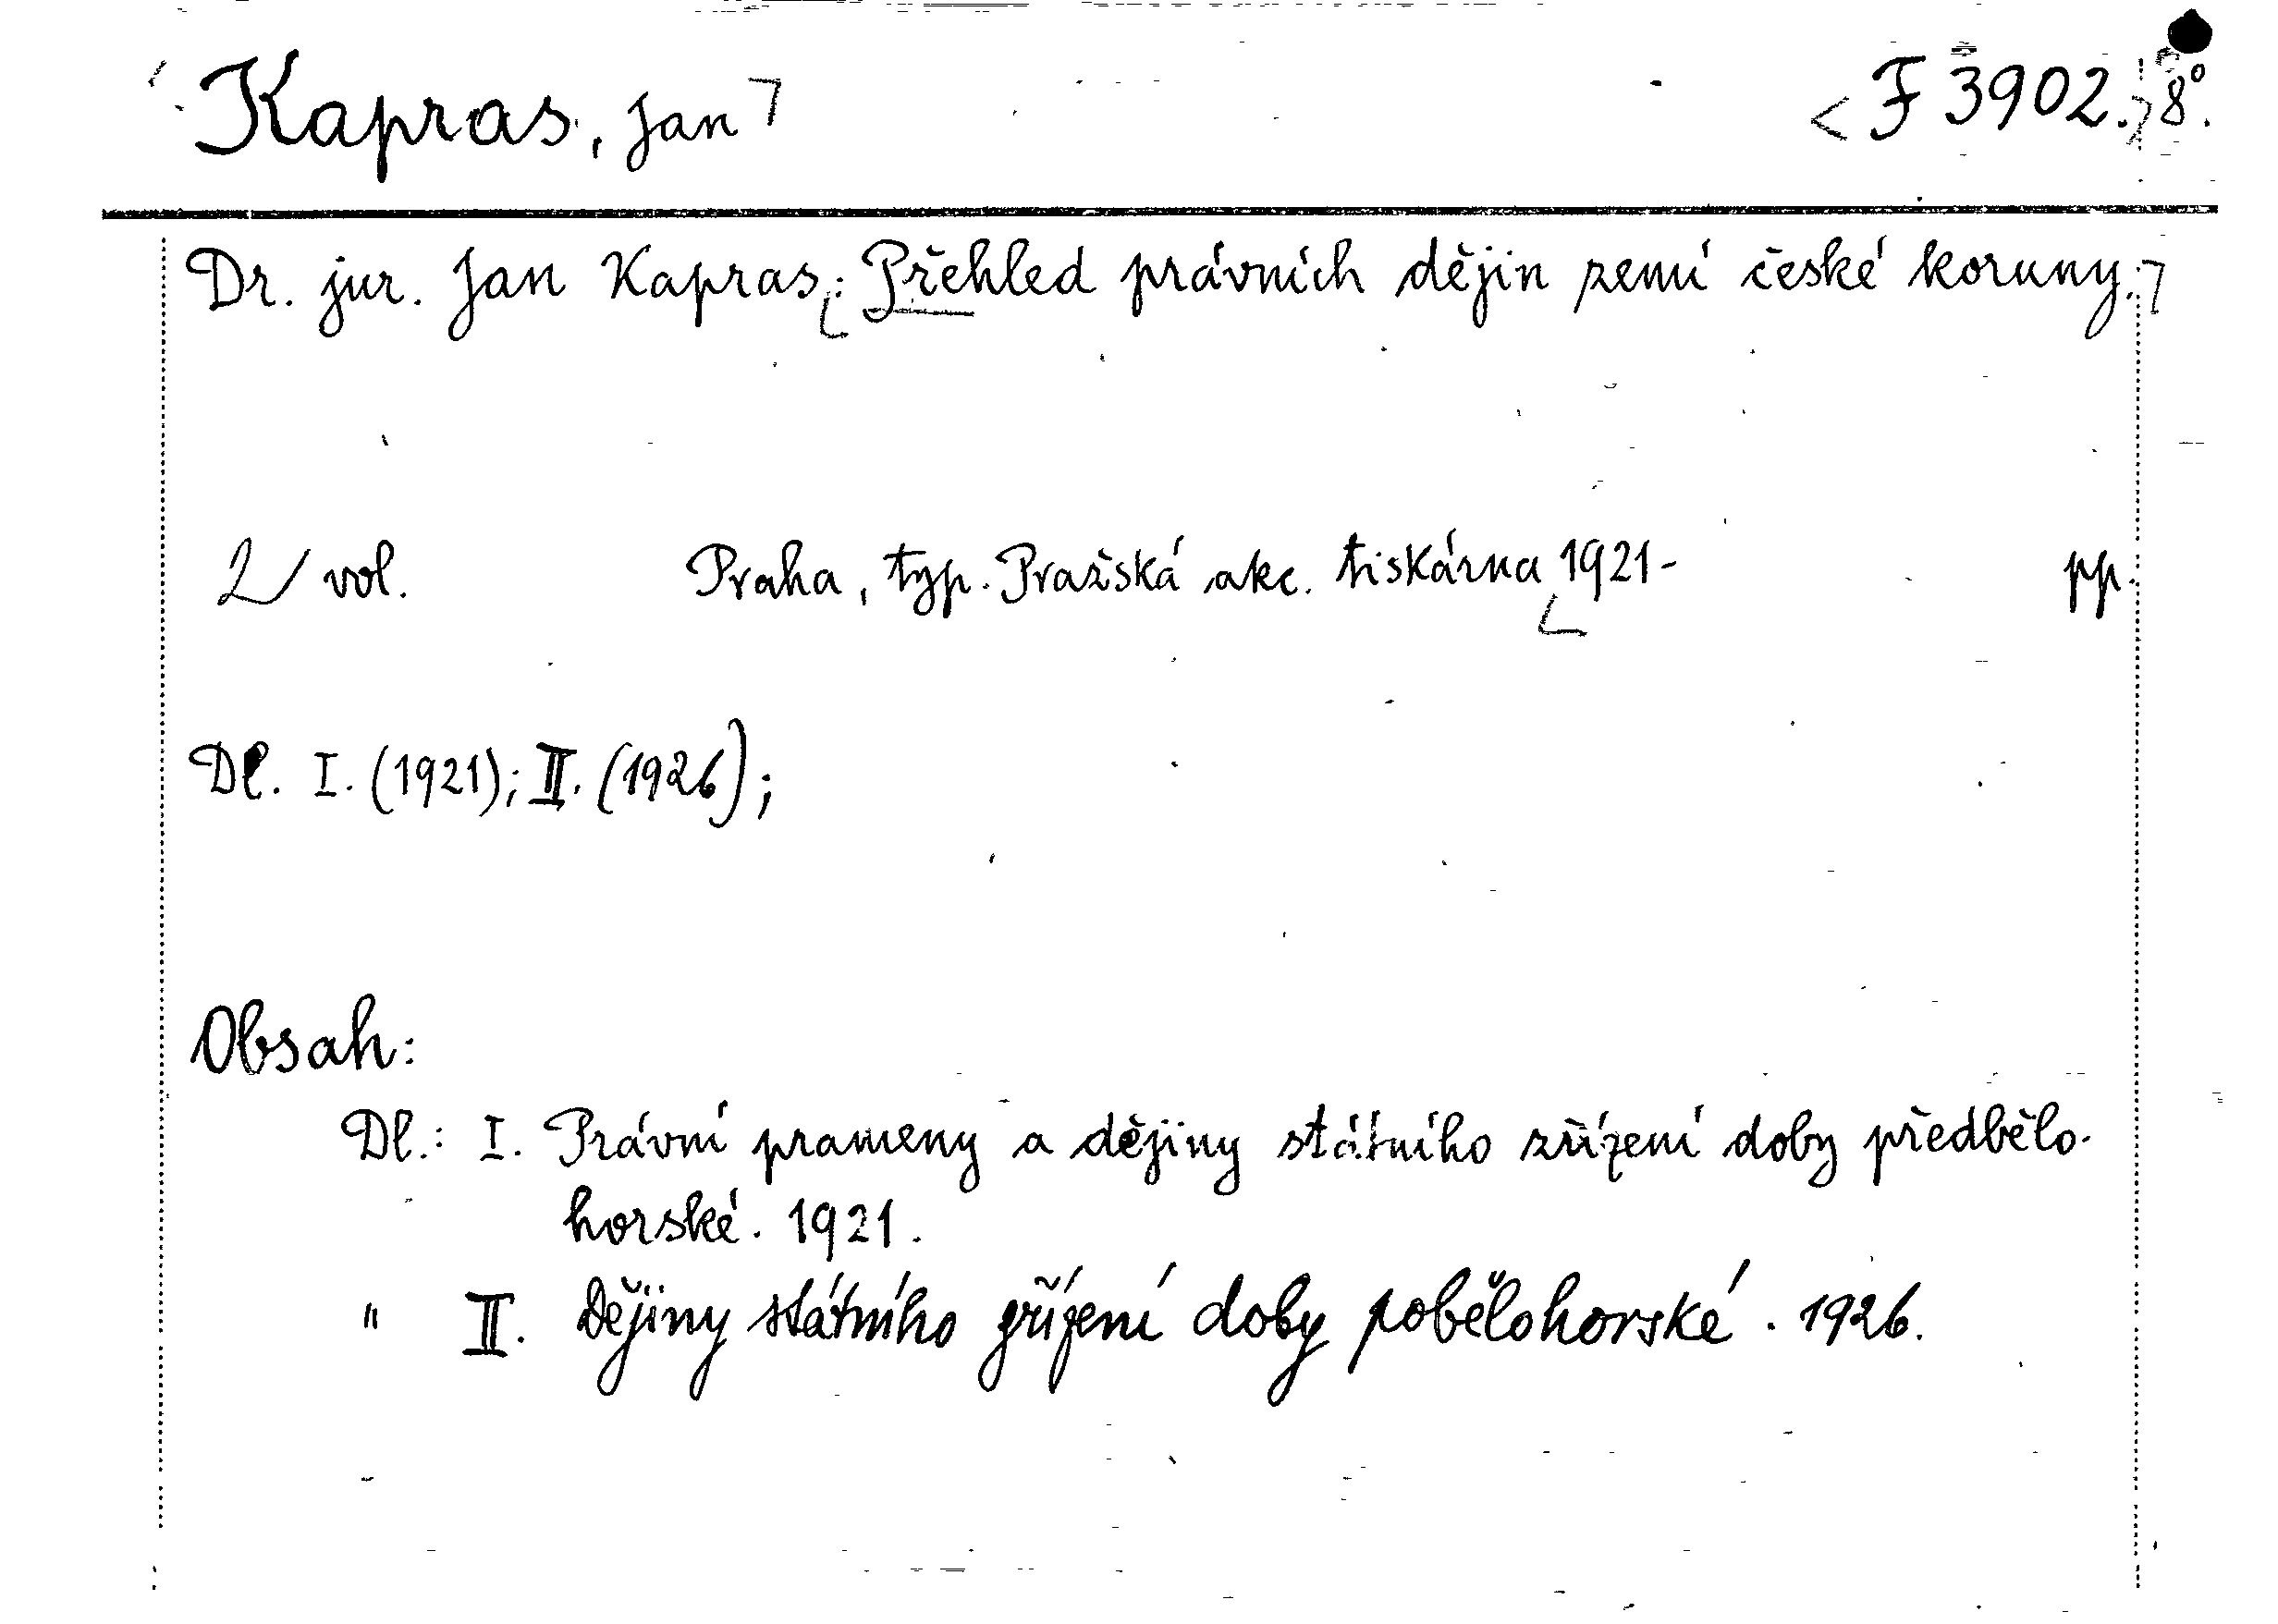 Kapras, Jan
F 3902. 8°.
Dr. jur. Jan Kapras: Přehled právních dějin zemí české koruny.
2 vol. Praha, typ. Pražská akc. tiskárna 1921- pp.
Dl. I. (1921); II. (1926);
Obsah:
Dl.: I. Právní prameny a dějiny státního zřízení doby předbělo-
horské. 1921.
" II. Dějiny státního zřízení doby pobělohorské. 1926.